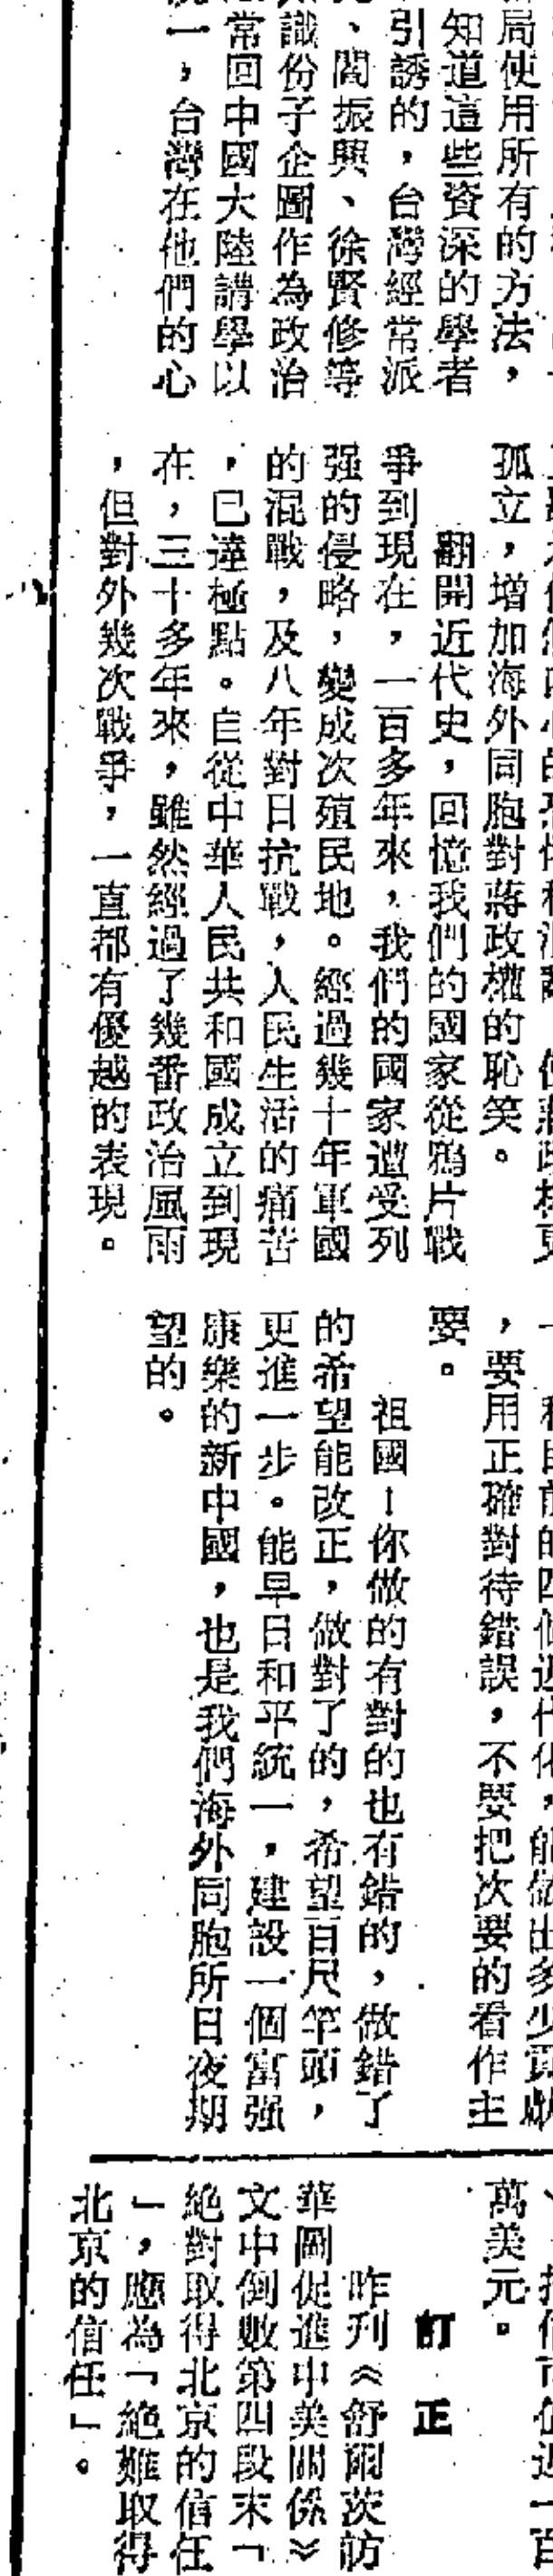 局使用所有的方法，
知道這些資深的學者
引誘的，台灣經常派
、閻振興、徐賢修等
識份子企圖作為政治
常回中國大陸講學以
一，台灣在他們的心
孤立，增加海外同胞對蔣政權的恥笑。
翻開近代史，回憶我們的國家從鴉片戰
爭到現在，一百多年來，我們的國家遭受列
强的侵略，變成次殖民地。經過幾十年軍國
的混戰，及八年對日抗戰，人民生活的痛苦
，已達極點。自從中華人民共和國成立到現
在，三十多年來，雖然經過了幾番政治風雨
，但對外幾次戰爭，一直都有優越的表現。
，要用正確對待錯誤，不要把次要的看作主
要。
祖國！你做的有對的也有錯的，做錯了
的希望能改正，做對了的，希望百尺竿頭，
更進一步。能早日和平統一，建設一個富强
康樂的新中國，也是我們海外同胞所日夜期
望的。
萬美元。
訂正
昨刋《舒爾茨訪
華圖促進中美關係》
文中倒數第四段末「
絕對取得北京的信任
」，應為「絕難取得
北京的信任」。